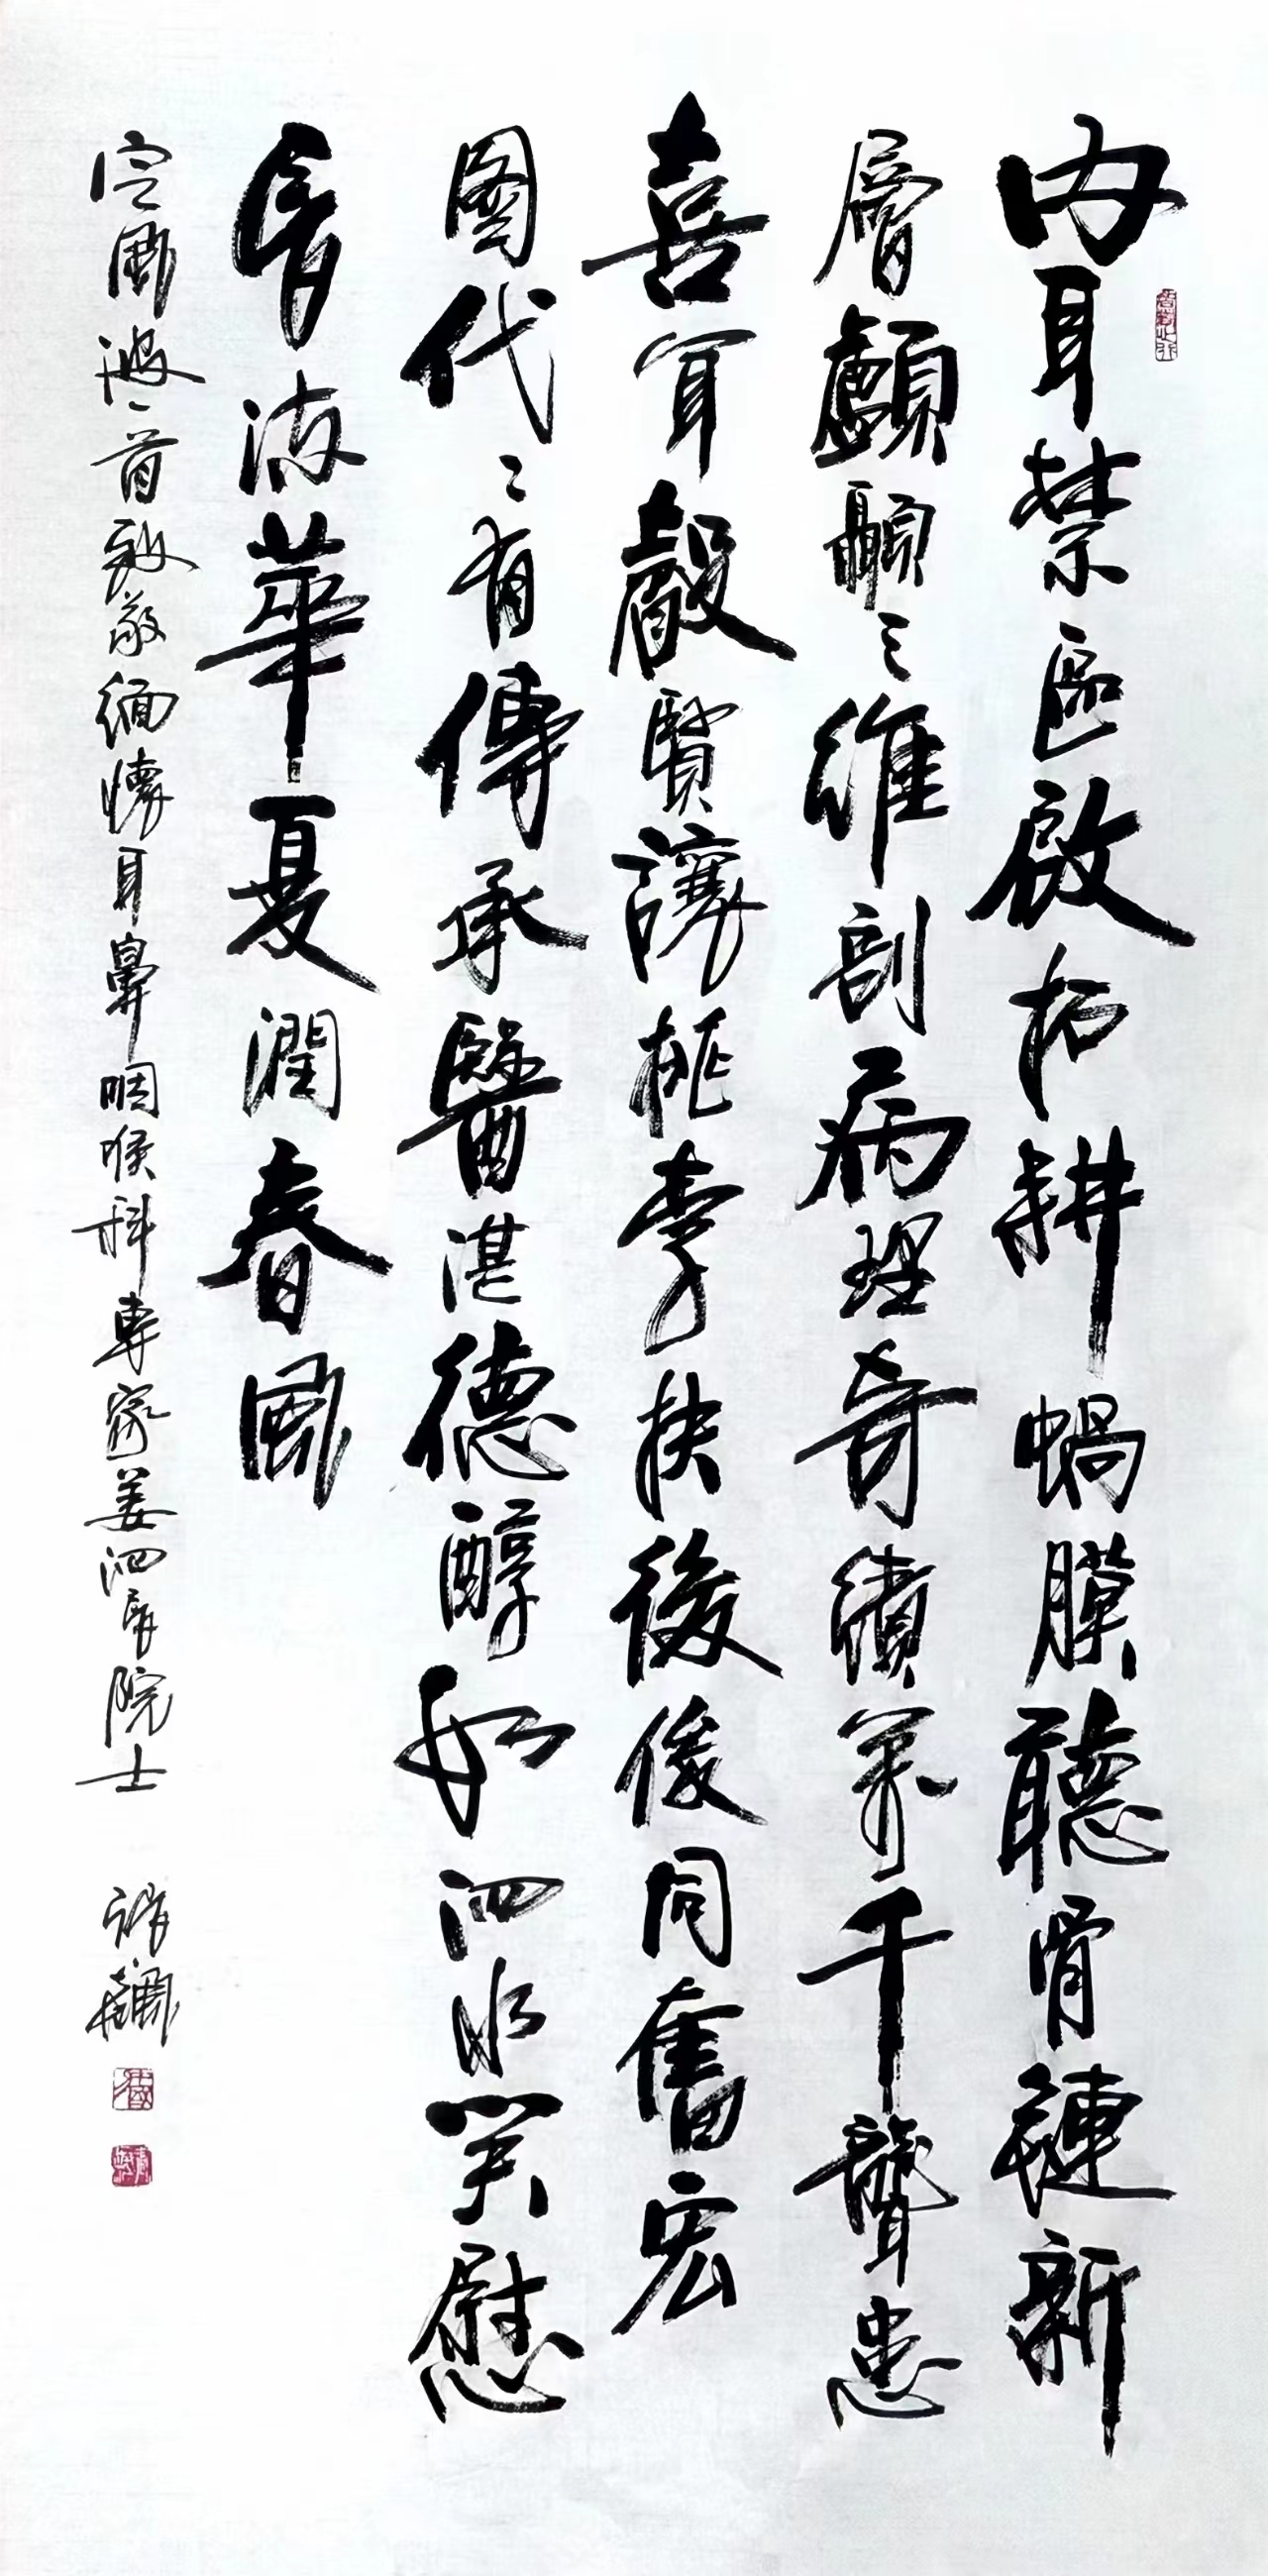 內耳禁區啟拓耕蝸膜聽骨鏈新
層顱顳三維剖病理奇績萬千聾患
喜耳聰賢讓桃李扶後俊同奮宏
圖代〻有傳承醫湛德醇如泗水笑慰
長流華夏潤春風
定風波一首致敬緬懷耳鼻咽喉科專家姜泗長院士